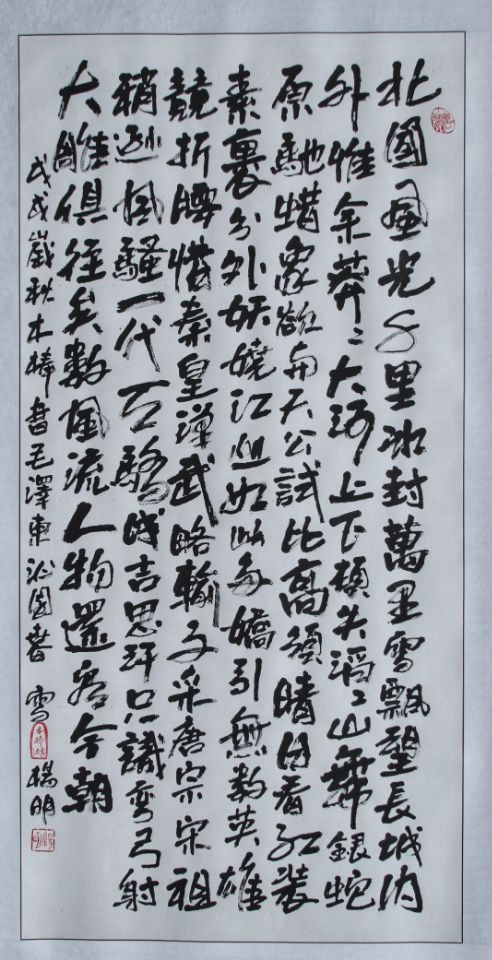 北國風光千里冰封萬里雪飄望長城内
外惟余莽〻大河上下頓失滔〻山舞銀蛇
原馳蜡象欲与天公試比高須晴日看紅裝
素裹分外妖嬈江山如此多嬌引無數英雄
競折腰惜秦皇漢武略輸文采唐宗宋祖
稍遜風騷一代天驕成吉思汗只識彎弓射
大雕俱往矣數風流人物還看今朝
戊戌歲秋木書毛澤東沁園春 雪 楊明